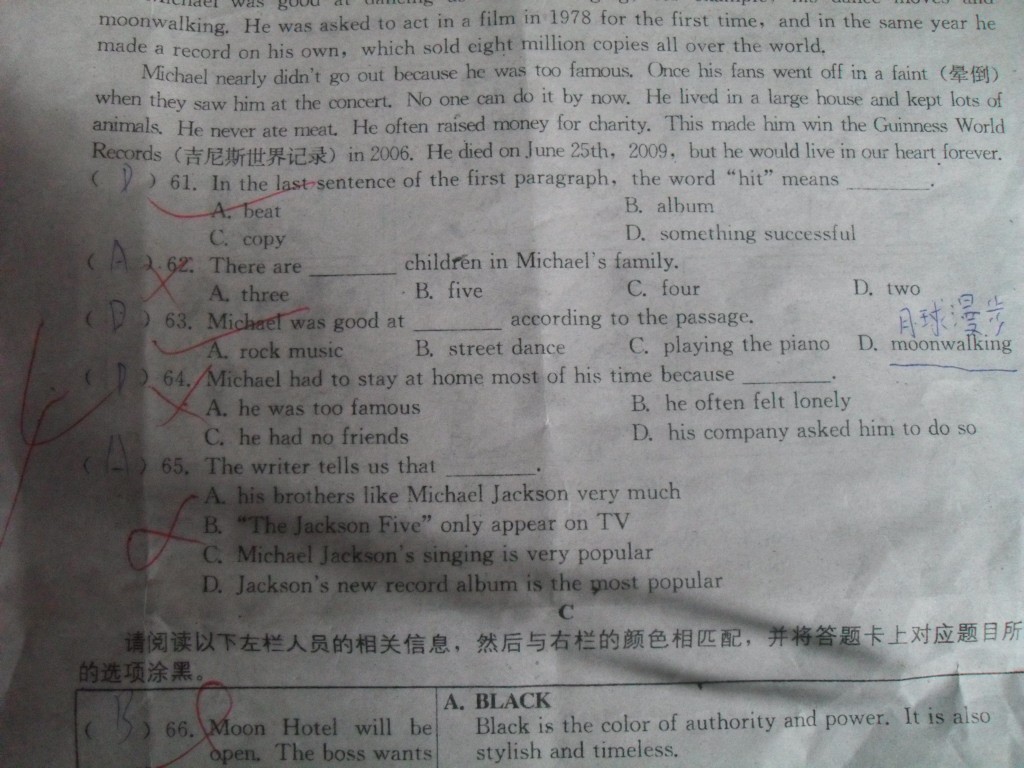 Michael was good at dancing
moonwalking. He was asked to act in a film in 1978 for the first time, and in the same year he
made a record on his own, which sold eight million copies all over the world.
Michael nearly didn't go out because he was too famous. Once his fans went off in a faint (晕倒)
when they saw him at the concert. No one can do it by now. He lived in a large house and kept lots of
animals. He never ate meat. He often raised money for charity. This made him win the Guinness World
Records (吉尼斯世界记录) in 2006. He died on June 25th, 2009, but he would live in our heart forever.
( D ) 61. In the last sentence of the first paragraph, the word “hit” means ________.
A. beat B. album
C. copy D. something successful
( A ) 62. There are ________ children in Michael's family.
A. three B. five C. four D. two
( D ) 63. Michael was good at ________ according to the passage.
月球漫步
A. rock music B. street dance C. playing the piano D. moonwalking
( D ) 64. Michael had to stay at home most of his time because ________.
A. he was too famous B. he often felt lonely
C. he had no friends D. his company asked him to do so
( A ) 65. The writer tells us that ________.
A. his brothers like Michael Jackson very much
B. “The Jackson Five” only appear on TV
C. Michael Jackson's singing is very popular
D. Jackson's new record album is the most popular
C
请阅读以下左栏人员的相关信息，然后与右栏的颜色相匹配，并将答题卡上对应题目所
的选项涂黑。
( B ) 66. Moon Hotel will be
open. The boss wants
A. BLACK
Black is the color of authority and power. It is also
stylish and timeless.